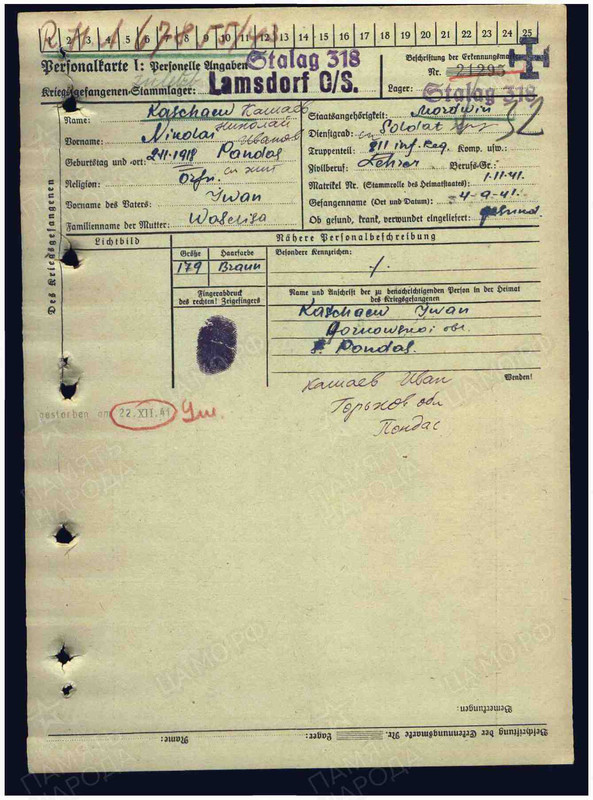 1 2 3 4 5 6 7 8 9 10 11 12 13 14 15 16 17 18 19 20 21 22 23 24 25
Personalkarte I: Personelle Angaben
Stalag 318
Kriegsgefangenen-Stammlager: Lamsdorf O/S.
Beschriftung der Erkennungsmarke
Nr. 21295
Lager: Stalag 318
Des Kriegsgefangenen
Name: Kaschaew Кашаев
Vorname: Nikolai Николай
Иванов
Geburtstag und -ort: Pondas
Religion:
Vorname des Vaters: Iwan
Familienname der Mutter:
Staatsangehörigkeit: Mordwin
Dienstgrad: Soldat
Truppenteil: Inf. Reg. Komp. usw.:
Zivilberuf: Lehrer Berufs-Gr.:
Matrikel Nr. (Stammrolle des Heimatstaates):
Gefangennahme (Ort und Datum): 4-9-41.
Ob gesund, krank, verwundet eingeliefert: gesund.
Lichtbild
Größe Haarfarbe
179 Braun
Fingerabdruck
des rechten! Zeigefingers
Nähere Personalbeschreibung
Besondere Kennzeichen:
Name und Anschrift der zu benachrichtigenden Person in der Heimat
des Kriegsgefangenen
Kaschaew Iwan
Pondas
Wenden!
Кашаев Иван
Горьков обл
Пондас
gestorben am 22.XII.41
Bemerkungen:
Beschriftung der Erkennungsmarke Nr.
Lager:
Name:
ПАМЯТЬ НАРОДА
ЦАМО.РФ